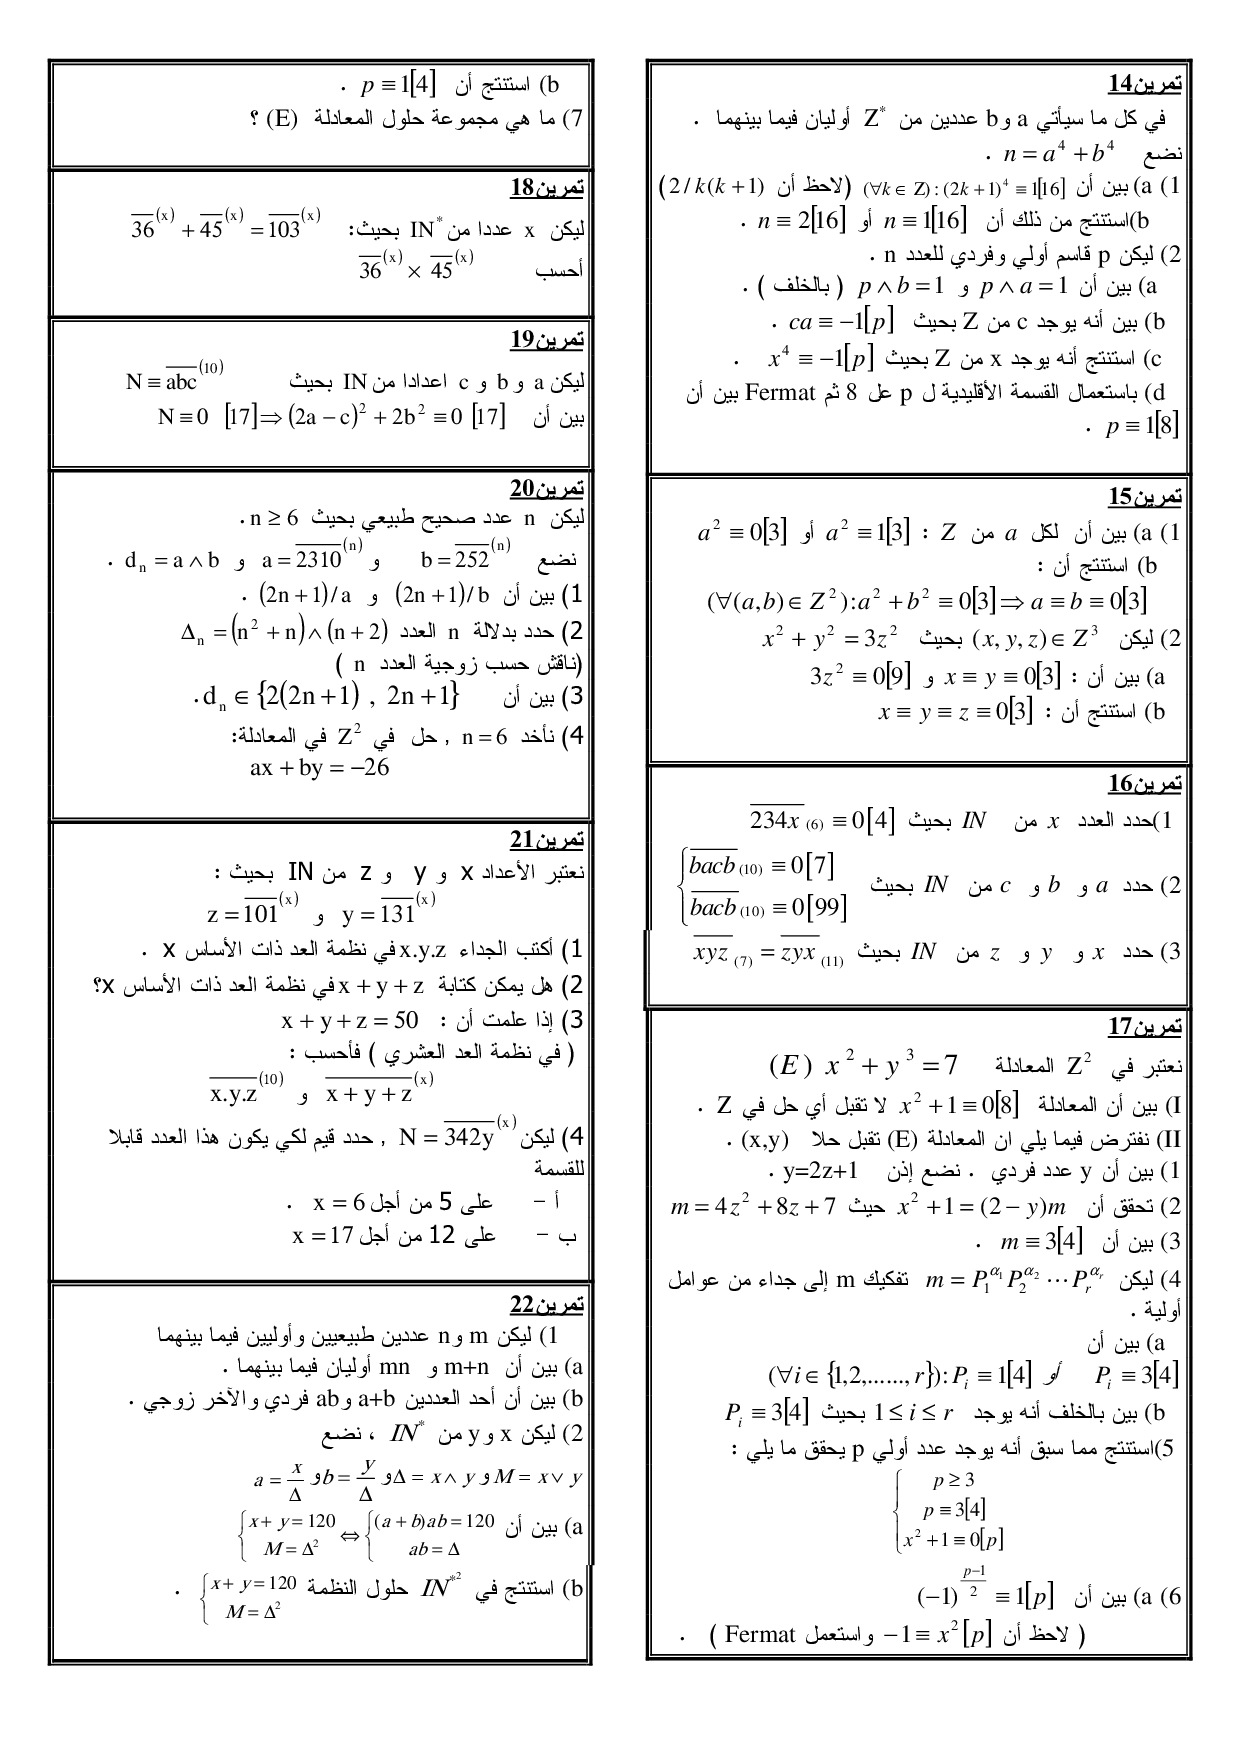 تمرين14
في كل ما سيأتي a و b عددين من Z* أوليان فيما بينهما .
نضع n = a⁴ + b⁴ .
1) a) بين أن (∀k ∈ Z) : (2k + 1)⁴ ≡ 1[16] (لاحظ أن 2 / k(k + 1))
b)استنتج من ذلك أن n ≡ 1[16] أو n ≡ 2[16] .
2) ليكن p قاسم أولي وفردي للعدد n .
a) بين أن p ∧ a = 1 و p ∧ b = 1 ( بالخلف ) .
b) بين أنه يوجد c من Z بحيث ca ≡ −1[p] .
c) استنتج أنه يوجد x من Z بحيث x⁴ ≡ −1[p] .
d) باستعمال القسمة الأقليدية ل p عل 8 ثم Fermat بين أن
p ≡ 1[8] .
تمرين15
1) a) بين أن لكل a من Z : a² ≡ 1[3] أو a² ≡ 0[3]
b) استنتج أن :
(∀(a,b) ∈ Z²): a² + b² ≡ 0[3] ⇒ a ≡ b ≡ 0[3]
2) ليكن (x, y, z) ∈ Z³ بحيث x² + y² = 3z²
a) بين أن : x ≡ y ≡ 0[3] و 3z² ≡ 0[9]
b) استنتج أن : x ≡ y ≡ z ≡ 0[3]
تمرين16
1)حدد العدد x من IN بحيث \overline{234x}₍₆₎ ≡ 0[4]
2) حدد a و b و c من IN بحيث { \overline{bacb}₍₁₀₎ ≡ 0[7]
\overline{bacb}₍₁₀₎ ≡ 0[99]
3) حدد x و y و z من IN بحيث \overline{xyz}₍₇₎ = \overline{zyx}₍₁₁₎
تمرين17
نعتبر في Z² المعادلة (E) x² + y³ = 7
I) بين أن المعادلة x² + 1 ≡ 0[8] لا تقبل أي حل في Z .
II) نفترض فيما يلي ان المعادلة (E) تقبل حلا (x,y) .
1) بين أن y عدد فردي . نضع إذن y=2z+1 .
2) تحقق أن x² + 1 = (2 − y)m حيث m = 4z² + 8z + 7
3) بين أن m ≡ 3[4] .
4) ليكن m = P₁^{α₁} P₂^{α₂} ⋯ P_r^{α_r} تفكيك m إلى جداء من عوامل
أولية .
a) بين أن
(∀i ∈ {1,2,......, r}): P_i ≡ 1[4] أو P_i ≡ 3[4]
b) بين بالخلف أنه يوجد 1 ≤ i ≤ r بحيث P_i ≡ 3[4]
5)استنتج مما سبق أنه يوجد عدد أولي p يحقق ما يلي :
{ p ≥ 3
p ≡ 3[4]
x² + 1 ≡ 0[p]
6) a) بين أن (−1)^{(p−1)/2} ≡ 1[p]
( لاحظ أن −1 ≡ x²[p] واستعمل Fermat ) .
b) استنتج أن p ≡ 1[4] .
7) ما هي مجموعة حلول المعادلة (E) ؟
تمرين18
ليكن x عددا من IN* بحيث: \overline{36}^{(x)} + \overline{45}^{(x)} = \overline{103}^{(x)}
أحسب \overline{36}^{(x)} × \overline{45}^{(x)}
تمرين19
ليكن a و b و c اعدادا من IN بحيث N = \overline{abc}^{(10)}
بين أن N ≡ 0 [17] ⇒ (2a − c)² + 2b² ≡ 0 [17]
تمرين20
ليكن n عدد صحيح طبيعي بحيث n ≥ 6 .
نضع b = \overline{252}^{(n)} و a = \overline{2310}^{(n)} و d_n = a ∧ b .
1) بين أن (2n + 1)/ b و (2n + 1)/ a .
2) حدد بدلالة n العدد Δ_n = (n² + n) ∧ (n + 2)
(ناقش حسب زوجية العدد n )
3) بين أن d_n ∈ {2(2n + 1) , 2n + 1} .
4) نأخد n = 6 , حل في Z² في المعادلة:
ax + by = −26
تمرين21
نعتبر الأعداد x و y و z من IN بحيث :
y = \overline{131}^{(x)} و z = \overline{101}^{(x)}
1) أكتب الجداء x.y.z في نظمة العد ذات الأساس x .
2) هل يمكن كتابة x + y + z في نظمة العد ذات الأساس x؟
3) إذا علمت أن : x + y + z = 50
( في نظمة العد العشري ) فأحسب :
\overline{x + y + z}^{(x)} و \overline{x.y.z}^{(10)}
4) ليكن N = \overline{342y}^{(x)} , حدد قيم لكي يكون هذا العدد قابلا
للقسمة
أ - على 5 من أجل x = 6 .
ب - على 12 من أجل x = 17
تمرين22
1) ليكن m و n عددين طبيعيين وأوليين فيما بينهما
a) بين أن m+n و mn أوليان فيما بينهما .
b) بين أن أحد العددين a+b و ab فردي والآخر زوجي .
2) ليكن x و y من IN* ، نضع
M = x ∨ y و Δ = x ∧ y و b = y/Δ و a = x/Δ
a) بين أن { x + y = 120 , M = Δ² ⇔ { (a + b)ab = 120 , ab = Δ
b) استنتج في IN*² حلول النظمة { x + y = 120 , M = Δ² .